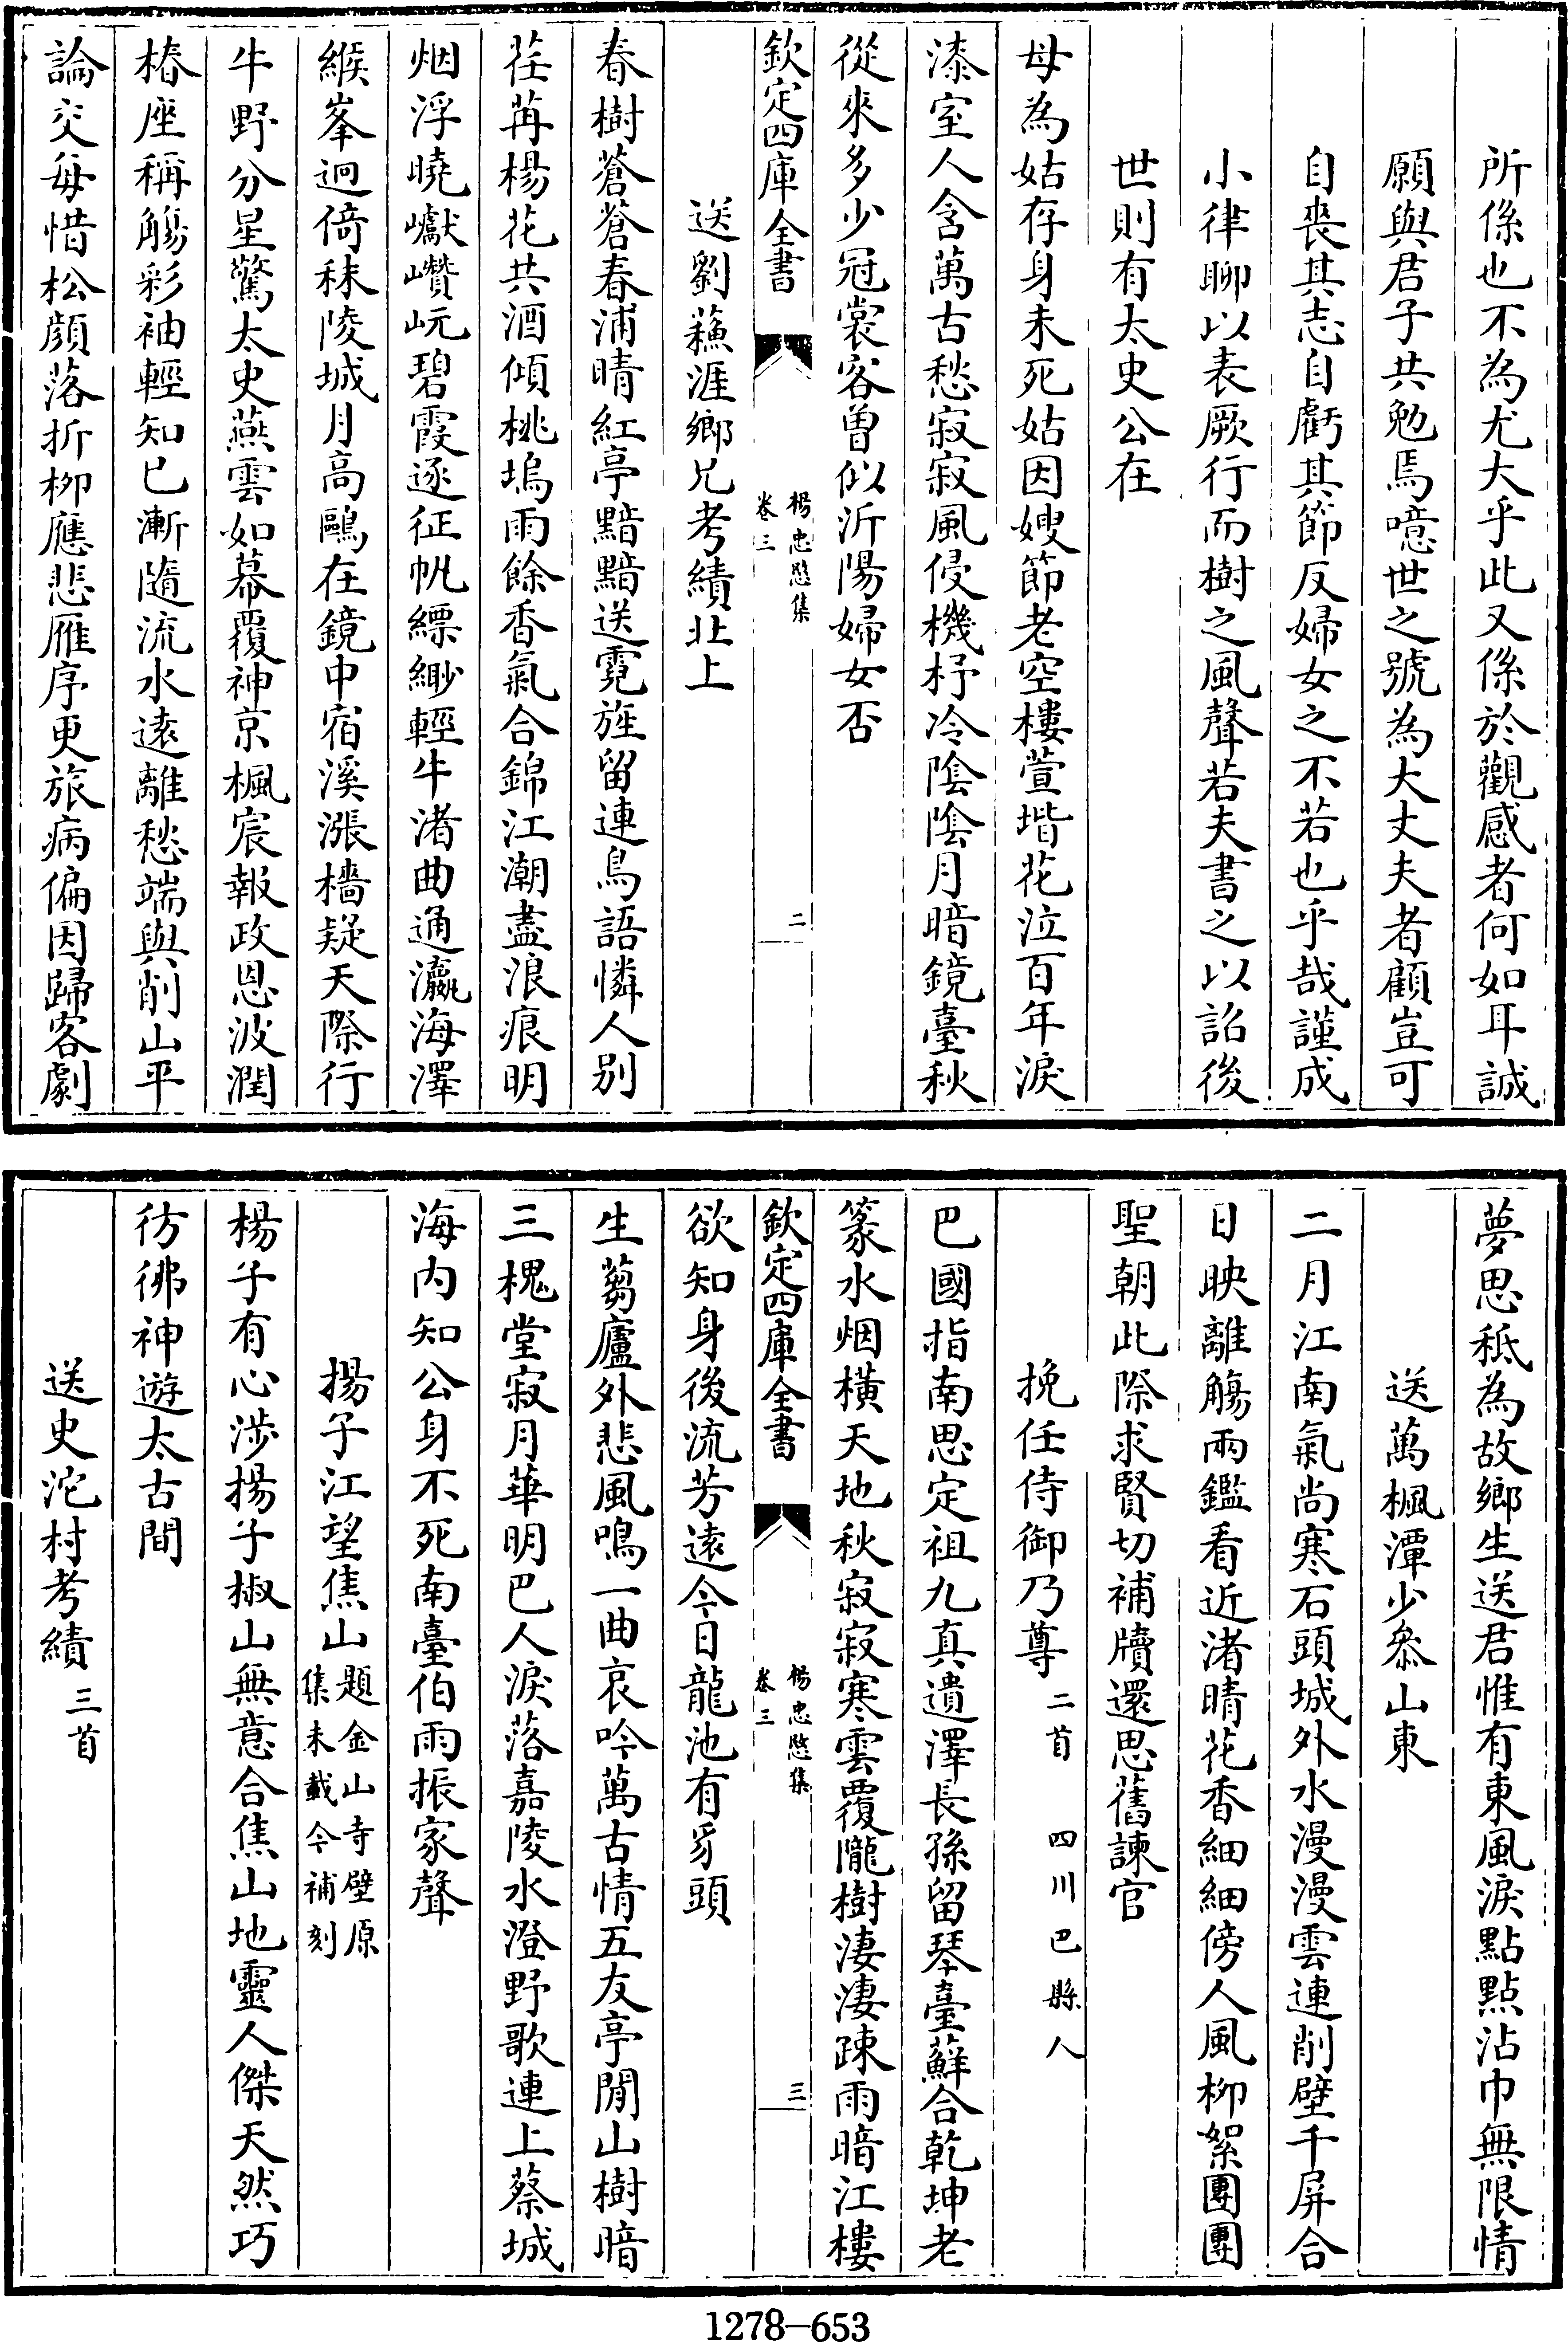 所係也不為尤大乎此又係於觀感者何如耳誠
願與君子共勉焉噫世之號為大丈夫者顧豈可
自喪其志自虧其節反婦女之不若也乎哉謹成
小律聊以表厥行而樹之風聲若夫書之以詔後
世則有太史公在
母為姑存身未死姑因嫂節老空樓萱堦花泣百年淚
漆室人含萬古愁寂寂風侵機杼冷陰陰月暗鏡臺秋
從來多少冠裳客曽似沂陽婦女否
欽定四庫全書
楊忠愍集
卷三
二
送劉蘓涯鄉兄考績北上
春樹蒼蒼春浦晴紅亭黯黯送霓旌留連鳥語憐人別
荏苒楊花共酒傾桃塢雨餘香氣合錦江潮盡浪痕明
烟浮曉巘巑岏碧霞逐征帆縹緲輕牛渚曲通瀛海澤
緱峯迥倚秣陵城月高鷗在鏡中宿溪漲檣疑天際行
牛野分星驚太史燕雲如幕覆神京楓宸報政恩波潤
椿座稱觴彩袖輕知已漸隨流水遠離愁端與削山平
論交每惜松顔落折柳應悲雁序更旅病偏因歸客劇
夢思秪為故鄉生送君惟有東風淚點點沾巾無限情
送萬楓潭少叅山東
二月江南氣尚寒石頭城外水漫漫雲連削壁千屏合
日映離觴兩鑑看近渚晴花香細細傍人風柳絮團團
聖朝此際求賢切補牘還思舊諫官
挽任侍御乃尊二首 四川巴縣人
巴國指南思定祖九真遺澤長孫留琴臺蘇合乾坤老
篆水烟橫天地秋寂寂寒雲覆隴樹淒淒踈雨暗江樓
欽定四庫全書
楊忠愍集
卷三
三
欲知身後流芳遠今日龍池有豸頭
生蒭廬外悲風鳴一曲哀吟萬古情五友亭閒山樹暗
三槐堂寂月華明巴人淚落嘉陵水澄野歌連上蔡城
海內知公身不死南臺伯雨振家聲
揚子江望焦山題金山寺壁原集未載今補刻
楊子有心涉揚子椒山無意合焦山地靈人傑天然巧
彷彿神遊太古間
送史沱村考績三首
1278-653